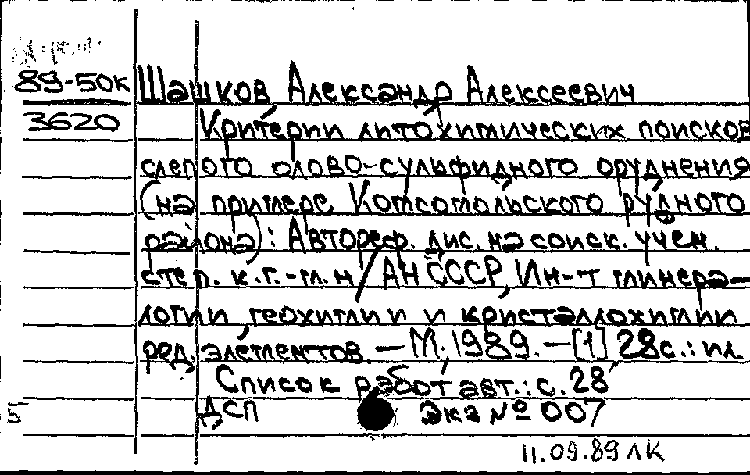 89-50к
3620
Шашков Александр Алексеевич
Критерии литохимических поисков
слепого олово-сульфидного оруднения
(на примере Комсомольского рудного
района): Автореф. дис. на соиск. учен.
степ. к.г.-м.н / АН СССР, Ин-т минера-
логии, геохимии и кристаллохимии
ред. элементов. — М. 1989. — [1] 28 с.: ил.
Список работ авт.: с. 28
ДСП Экз № 007
11.09.89 ЛК